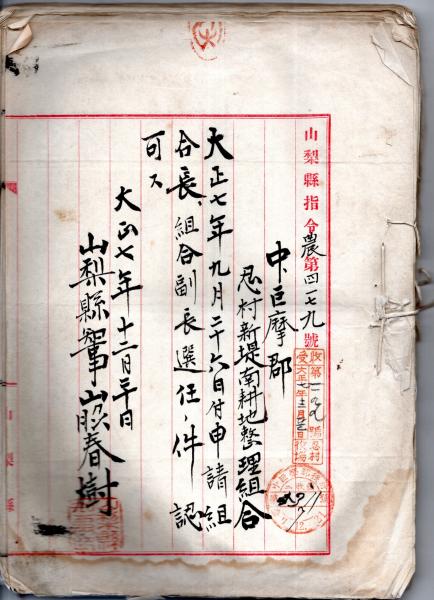 山梨縣指令農第四一七九號
中巨摩郡
忍村新堤南耕地整理組合
大正七年九月二十六日付申請組
合長、組合副長選任ノ件認
可ス
大正七年十二月二十日
山梨縣知事山脇春樹